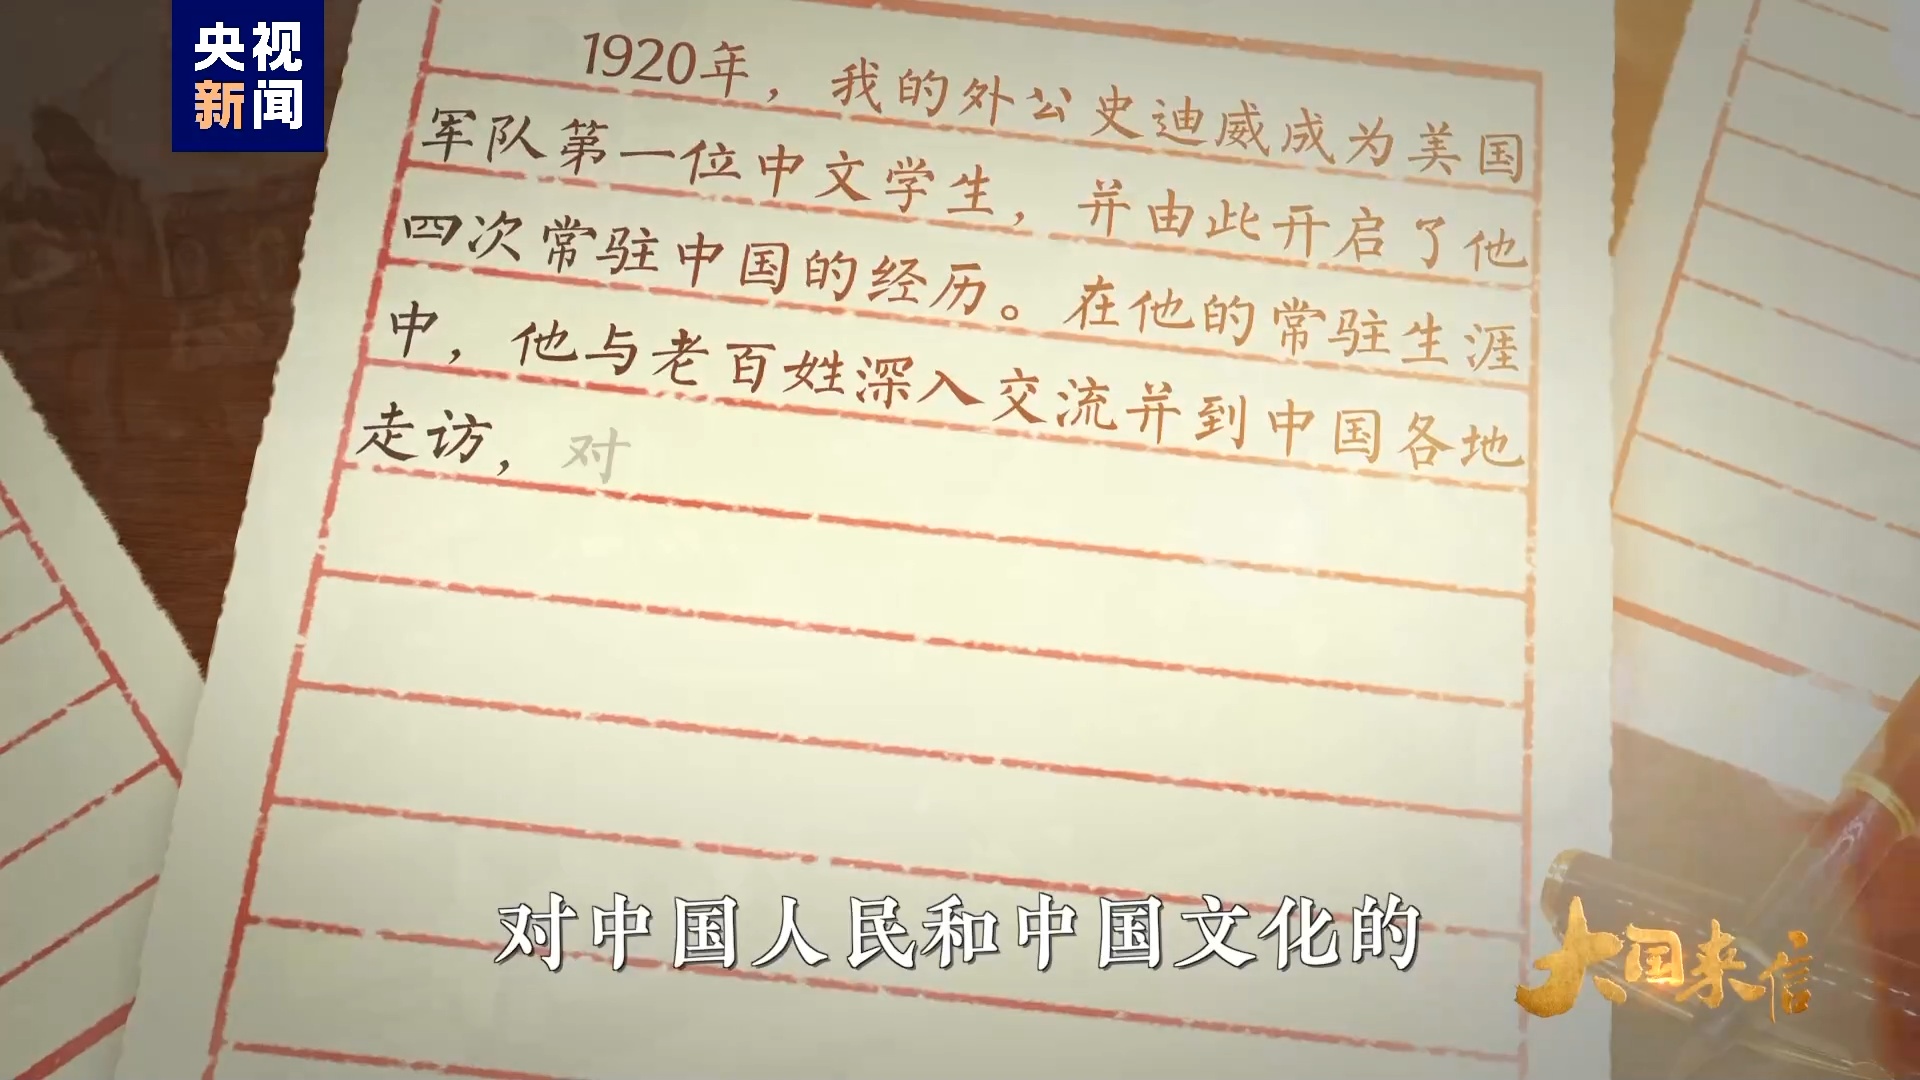 央视
新闻
1920年，我的外公史迪威成为美国
军队第一位中文学生，并由此开启了他
四次常驻中国的经历。在他的常驻生涯
中，他与老百姓深入交流并到中国各地
走访，对
对中国人民和中国文化的
大国来信